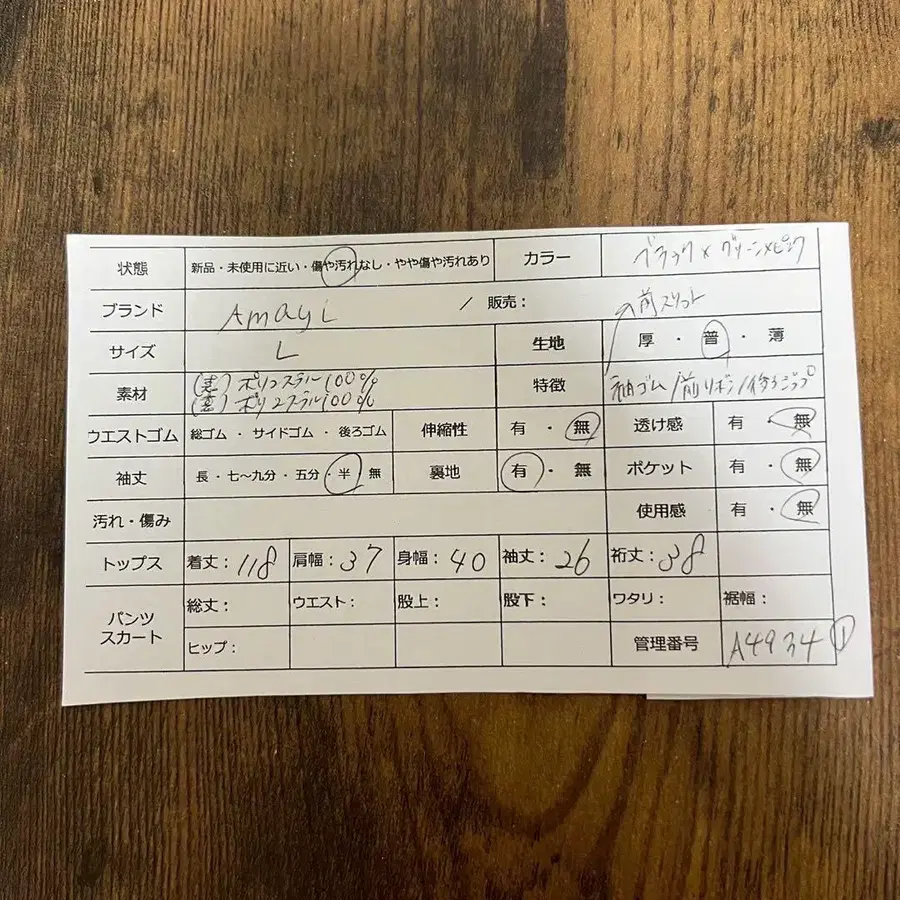 状態 新品・未使用に近い・傷や汚れなし・やや傷や汚れあり カラー ブラック×グリーン×ピンク
ブランド Amayi / 販売：
前スリット
サイズ L 生地 厚・普・薄
素材 (表)ポリエステル100%
(裏)ポリエステル100%
特徴 袖ゴム/前リボン/後ろジップ
ウエストゴム 総ゴム・サイドゴム・後ろゴム 伸縮性 有・無 透け感 有・無
袖丈 長・七〜九分・五分・半・無 裏地 有・無 ポケット 有・無
汚れ・傷み 使用感 有・無
トップス 着丈：118 肩幅：37 身幅：40 袖丈：26 裄丈：38
パンツ
スカート
総丈： ウエスト： 股上： 股下： ワタリ： 裾幅：
ヒップ： 管理番号 A4934 ①